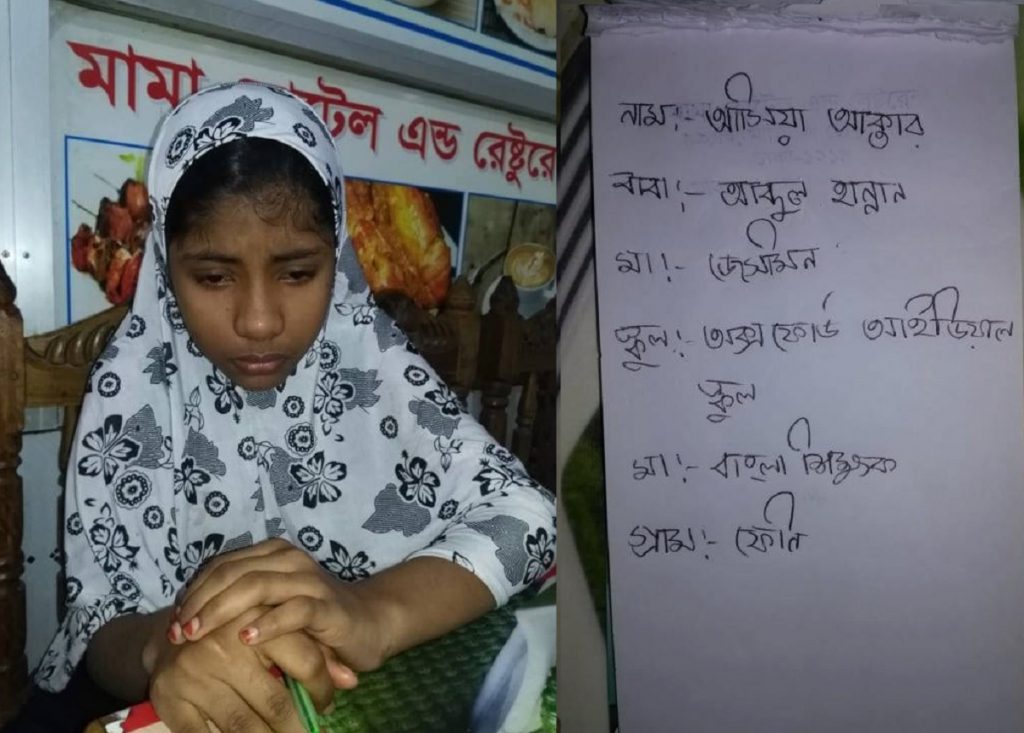 মামা টেল এন্ড রেষ্টুরে
নাম:- আক্তার
বাবা:- আব্দুল হান্নান
মা:- জেসমিন
স্কুল:- অক্সফোর্ড আইডিয়াল
স্কুল
মা:- বাংলা শিক্ষক
গ্রাম:- ফেনি